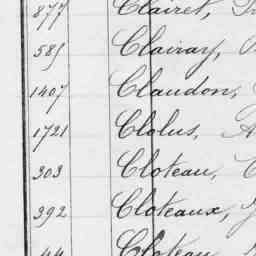 877 Clairet,
585 Clairay,
1407 Claudon,
1721 Clolus, A
303 Cloteau, C
392 Cloteaux, J
44 Cloteau